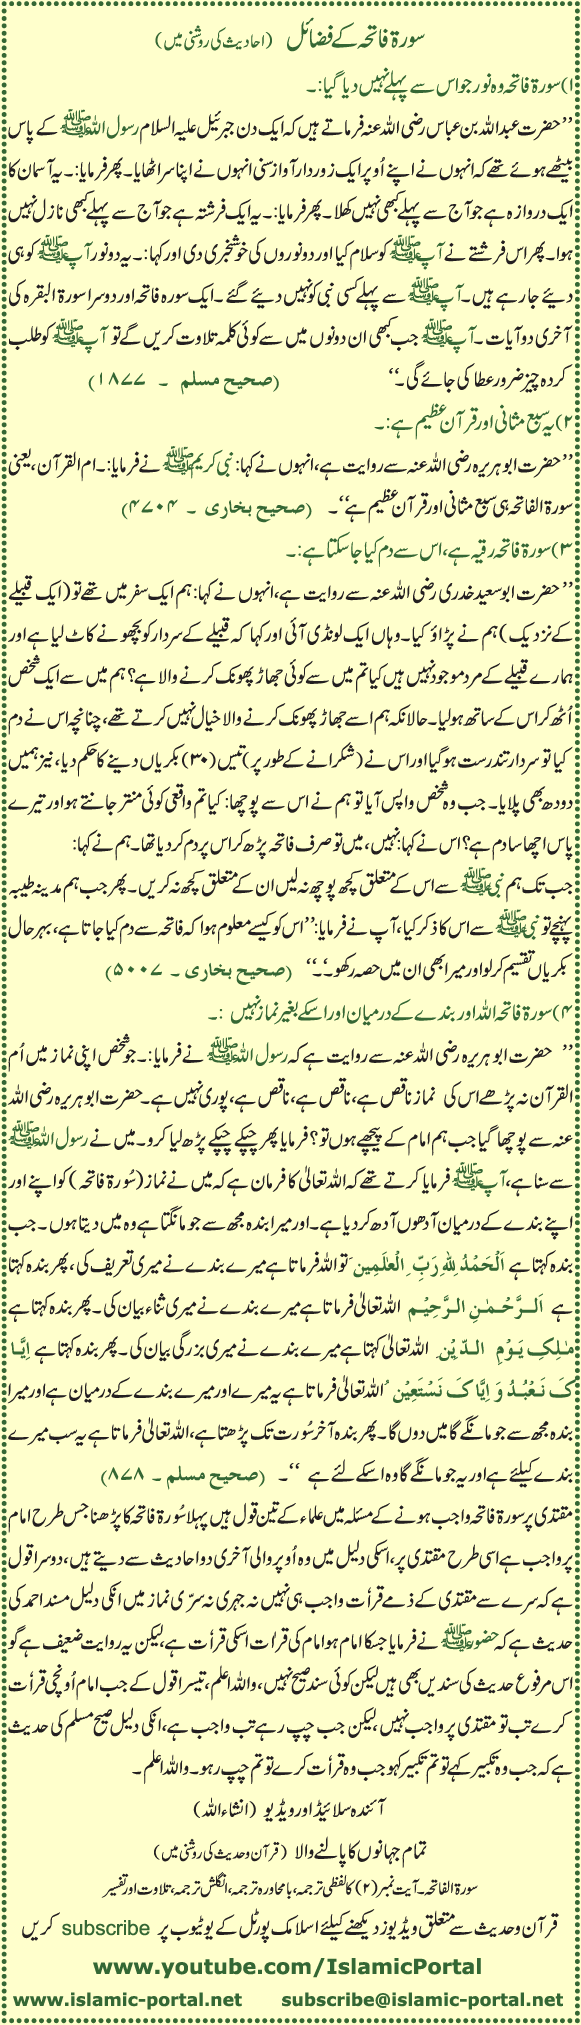 سورۃ فاتحہ کے فضائل (احادیث کی روشنی میں)
۱) سورۃ فاتحہ وہ نور جو اس سے پہلے نہیں دیا گیا:۔
’’حضرت عبداللہ بن عباس رضی اللہ عنہ فرماتے ہیں کہ ایک دن جبرئیل علیہ السلام رسول اللہ ﷺ کے پاس
بیٹھے ہوئے تھے کہ انہوں نے اپنے اُوپر ایک زوردار آواز سنی انہوں نے اپنا سر اٹھایا۔ پھر فرمایا:۔ یہ آسمان کا
ایک دروازہ ہے جو آج سے پہلے کبھی نہیں کھلا۔ پھر فرمایا:۔ یہ ایک فرشتہ ہے جو آج سے پہلے کبھی نازل نہیں
ہوا۔ پھر اس فرشتے نے آپ ﷺ کو سلام کیا اور دو نوروں کی خوشخبری دی اور کہا:۔ یہ دو نور آپ ﷺ کو ہی
دیئے جا رہے ہیں۔ آپ ﷺ سے پہلے کسی نبی کو نہیں دیئے گئے۔ ایک سورہ فاتحہ اور دوسرا سورۃ البقرہ کی
آخری دو آیات۔ آپ ﷺ جب کبھی ان دونوں میں سے کوئی کلمہ تلاوت کریں گے تو آپ ﷺ کو طلب
کردہ چیز ضرور عطا کی جائے گی۔‘‘ (صحیح مسلم ۔ ۱۸۷۷)
۲) یہ سبع مثانی اور قرآن عظیم ہے:۔
’’حضرت ابو ہریرہ رضی اللہ عنہ سے روایت ہے، انہوں نے کہا: نبی کریم ﷺ نے فرمایا:۔ ام القرآن، یعنی
سورۃ الفاتحہ ہی سبع مثانی اور قرآن عظیم ہے‘‘۔ (صحیح بخاری ۔ ۴۷۰۴)
۳) سورۃ فاتحہ رقیہ ہے، اس سے دم کیا جاسکتا ہے:۔
’’حضرت ابو سعید خدری رضی اللہ عنہ سے روایت ہے، انہوں نے کہا: ہم ایک سفر میں تھے تو (ایک قبیلے
کے نزدیک) ہم نے پڑاؤ کیا۔ وہاں ایک لونڈی آئی اور کہا کہ قبیلے کے سردار کو بچھو نے کاٹ لیا ہے اور
ہمارے قبیلے کے مرد موجود نہیں ہیں کیا تم میں سے کوئی جھاڑ پھونک کرنے والا ہے؟ ہم میں سے ایک شخص
اُٹھ کر اس کے ساتھ ہو لیا۔ حالانکہ ہم اسے جھاڑ پھونک کرنے والا خیال نہیں کرتے تھے، چنانچہ اس نے دم
کیا تو سردار تندرست ہو گیا اور اس نے (شکرانے کے طور پر) تیس (۳۰) بکریاں دینے کا حکم دیا، نیز ہمیں
دودھ بھی پلایا۔ جب وہ شخص واپس آیا تو ہم نے اس سے پوچھا: کیا تم واقعی کوئی منتر جانتے ہو اور تیرے
پاس اچھا سا دم ہے؟ اس نے کہا: نہیں، میں تو صرف فاتحہ پڑھ کر اس پر دم کر دیا تھا۔ ہم نے کہا:
جب تک ہم نبی ﷺ سے اس کے متعلق کچھ پوچھ نہ لیں ان کے متعلق کچھ نہ کریں۔ پھر جب ہم مدینہ طیبہ
پہنچے تو نبی ﷺ سے اس کا ذکر کیا، آپ نے فرمایا: ’’اس کو کیسے معلوم ہوا کہ فاتحہ سے دم کیا جاتا ہے، بہرحال
بکریاں تقسیم کر لو اور میرا بھی ان میں حصہ رکھو۔‘‘۔ (صحیح بخاری ۔ ۵۰۰۷)
۴) سورۃ فاتحہ اللہ اور بندے کے درمیان اور اسکے بغیر نماز نہیں :۔
’’ حضرت ابو ہریرہ رضی اللہ عنہ سے روایت ہے کہ رسول اللہ ﷺ نے فرمایا:۔ جو شخص اپنی نماز میں اُم
القرآن نہ پڑھے اس کی نماز ناقص ہے، ناقص ہے، ناقص ہے، پوری نہیں ہے۔ حضرت ابو ہریرہ رضی اللہ
عنہ سے پوچھا گیا جب ہم امام کے پیچھے ہوں تو؟ فرمایا پھر چپکے چپکے پڑھ لیا کرو۔ میں نے رسول اللہ ﷺ
سے سنا ہے، آپ ﷺ فرمایا کرتے تھے کہ اللہ تعالیٰ کا فرمان ہے کہ میں نے نماز (سُورۃ فاتحہ) کو اپنے اور
اپنے بندے کے درمیان آدھوں آدھ کر دیا ہے۔ اور میرا بندہ مجھ سے جو مانگتا ہے وہ میں دیتا ہوں۔ جب
بندہ کہتا ہے اَلْحَمْدُ لِلّٰہِ رَبِّ الْعٰلَمِیْنَ تو اللہ فرماتا ہے میرے بندے نے میری تعریف کی، پھر بندہ کہتا
ہے اَلرَّحْمٰنِ الرَّحِیْمِ اللہ تعالیٰ فرماتا ہے میرے بندے نے میری ثناء بیان کی۔ پھر بندہ کہتا ہے
مٰلِکِ یَوْمِ الدِّیْنِ اللہ تعالیٰ کہتا ہے میرے بندے نے میری بزرگی بیان کی۔ پھر بندہ کہتا ہے اِیَّا
کَ نَعْبُدُ وَ اِیَّا کَ نَسْتَعِیْنُ اللہ تعالیٰ فرماتا ہے یہ میرے اور میرے بندے کے درمیان ہے اور میرا
بندہ مجھ سے جو مانگے گا میں دوں گا۔ پھر بندہ آخر سُورت تک پڑھتا ہے، اللہ تعالیٰ فرماتا ہے یہ سب میرے
بندے کیلئے ہے اور یہ جو مانگے گا وہ اسکے لئے ہے ‘‘۔ (صحیح مسلم ۔ ۸۷۸)
مقتدی پر سورۃ فاتحہ واجب ہونے کے مسئلہ میں علماء کے تین قول ہیں پہلا سُورۃ فاتحہ کا پڑھنا جس طرح امام
پر واجب ہے اسی طرح مقتدی پر، اسکی دلیل میں وہ اُوپر والی آخری دو احادیث سے دیتے ہیں، دوسرا قول
ہے کہ سرے سے مقتدی کے ذمے قرأت واجب ہی نہیں نہ جہری نہ سرّی نماز میں انکی دلیل مسند احمد کی
حدیث ہے کہ حضور ﷺ نے فرمایا جسکا امام ہو امام کی قرأت اسکی قرأت ہے، لیکن یہ روایت ضعیف ہے گو
اس مرفوع حدیث کی سندیں بھی ہیں لیکن کوئی سند صحیح نہیں، واللہ اعلم، تیسرا قول کے جب امام اُونچی قرأت
کرے تب تو مقتدی پر واجب نہیں، لیکن جب چپ رہے تب واجب ہے، انکی دلیل صحیح مسلم کی حدیث
ہے کہ جب وہ تکبیر کہے تو تم تکبیر کہو جب وہ قرأت کرے تو تم چپ رہو۔ واللہ اعلم۔
آئندہ سلائیڈ اور ویڈیو (انشاء اللہ)
تمام جہانوں کا پالنے والا (قرآن وحدیث کی روشنی میں)
سورۃ الفاتحہ۔ آیت نمبر (۲) کا لفظی ترجمہ، بامحاورہ ترجمہ، انگلش ترجمہ، تلاوت اور تفسیر
قرآن وحدیث سے متعلق ویڈیوز دیکھنے کیلئے اسلامک پورٹل کے یوٹیوب پر subscribe کریں
www.youtube.com/IslamicPortal
www.islamic-portal.net subscribe@islamic-portal.net